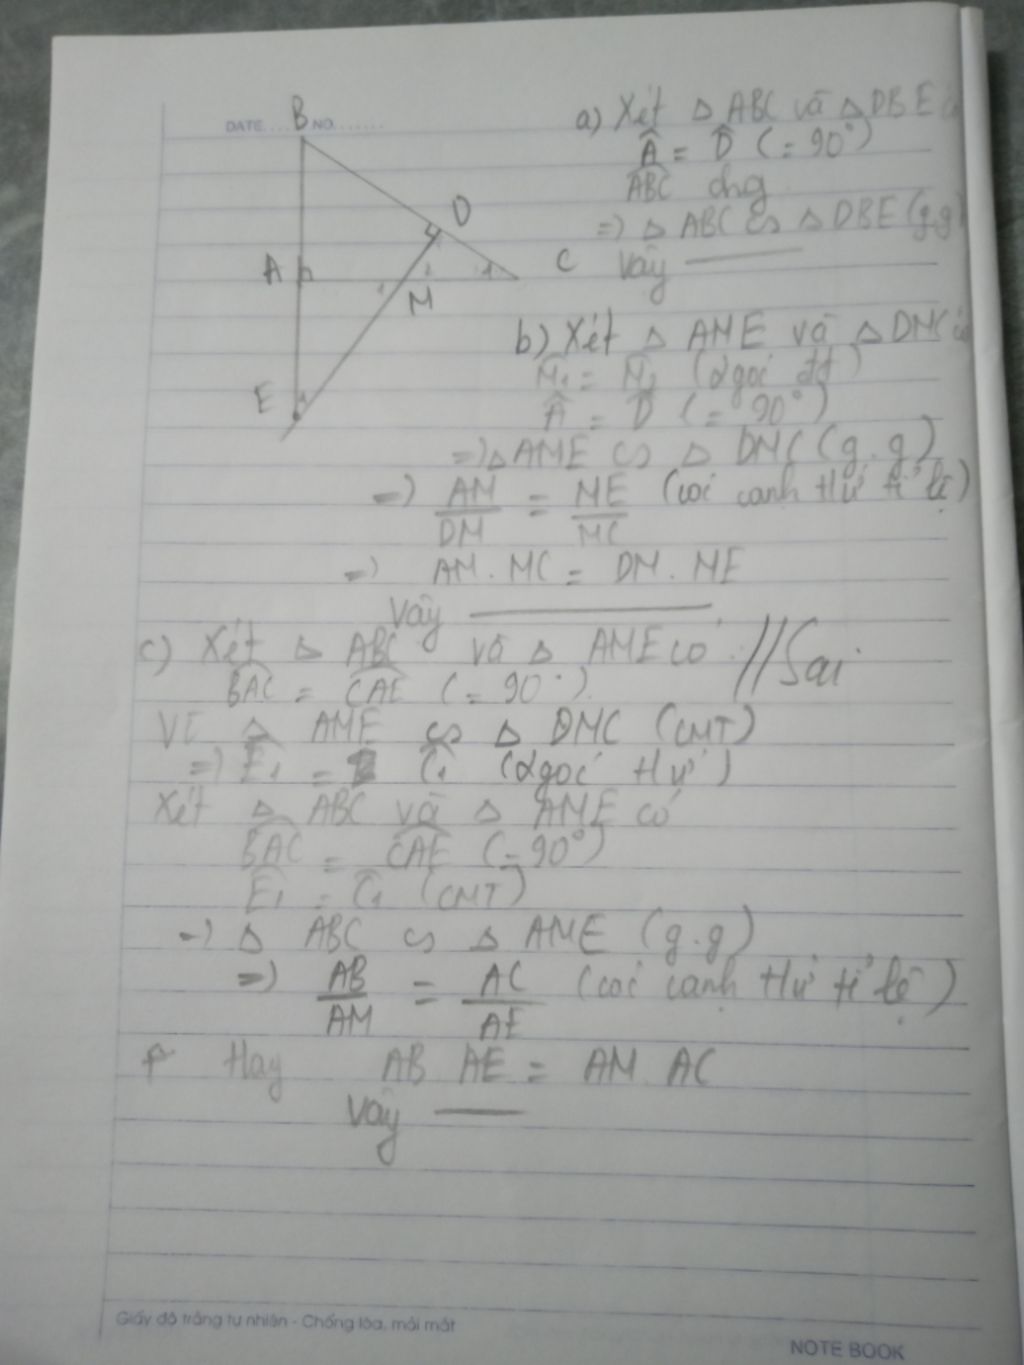 DATE.... NO.......
B
D
A
C
M
E
a) Xét Δ ABC và Δ DBE có
Â = D̂ (= 90°)
ABC chg
=> Δ ABC ∽ Δ DBE (g.g)
Vậy
b) Xét Δ AME và Δ DMC có
M̂₁ = M̂₂ (2 goć đđ)
Â = D̂ (= 90°)
=> Δ AME ∽ Δ DMC (g.g)
=> AM/DM = ME/MC (cać cạnh tứ tỉ lệ)
=> AM . MC = DM . ME
Vậy
c) Xét Δ ABC và Δ AME có // Sai
BAC = CAE (= 90°)
Vì Δ AME ∽ Δ DMC (CMT)
=> Ê₁ = Ĉ₁ (2 goć tứ)
Xét Δ ABC và Δ AME có
BAC = CAE (= 90°)
Ê₁ = Ĉ₁ (CMT)
=> Δ ABC ∽ Δ AME (g.g)
=> AB/AM = AC/AE (cać cạnh tứ tỉ lệ)
Hay AB AE = AM . AC
Vậy
Giấy độ trắng tự nhiên - Chống lóa, mỏi mắt
NOTE BOOK